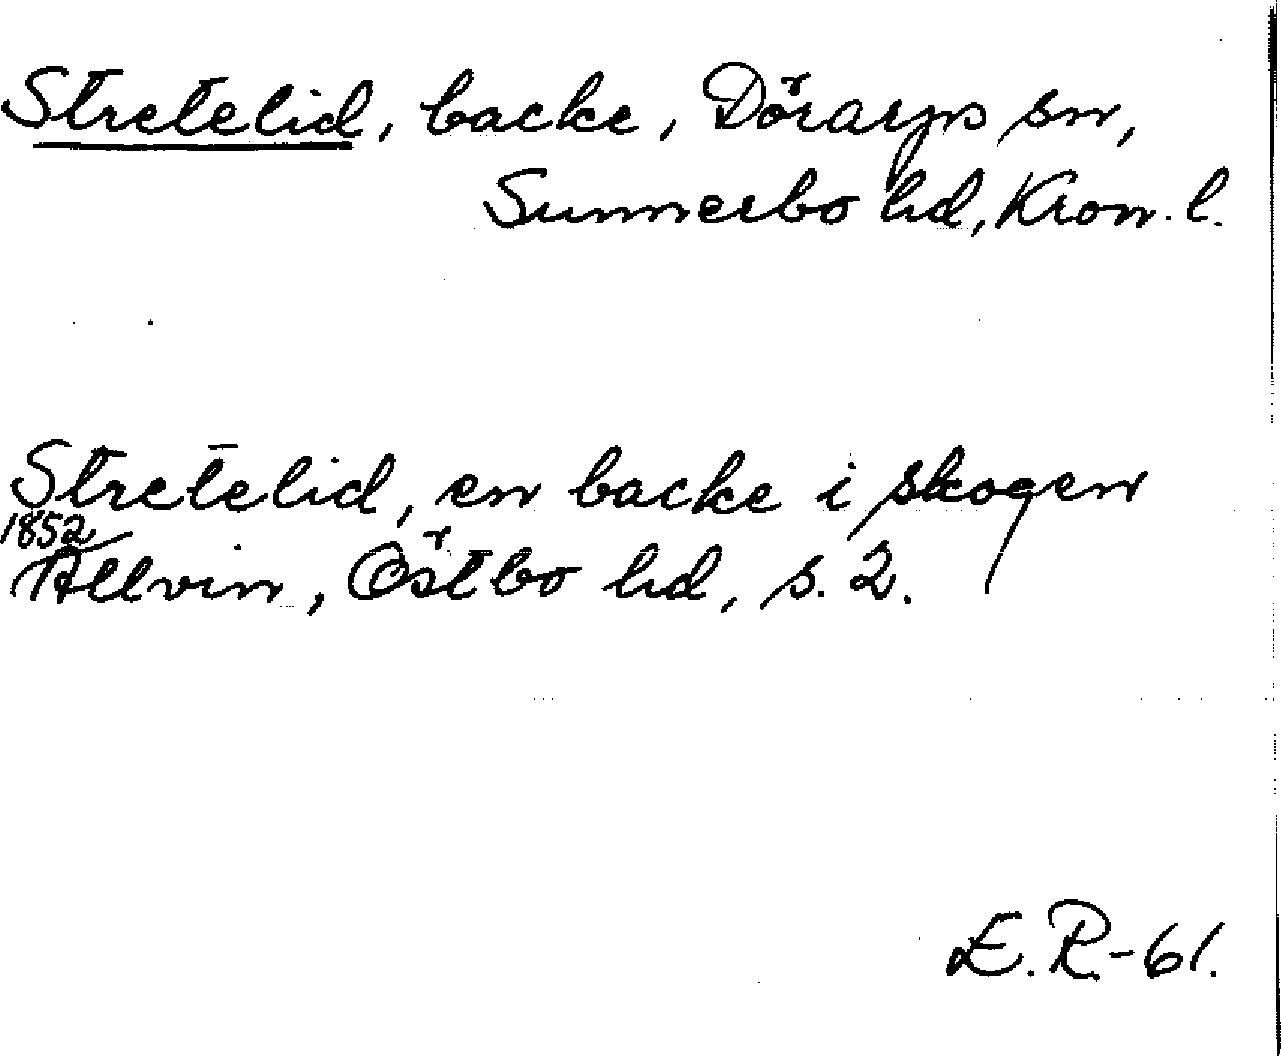 Stretelid, backe, Döraryps sn,
Sunnerbo hd, Kron. l.
Stretelid, en backe i skogen
1852
Allvin, Östbo hd, s. 2.
E. R.-61.